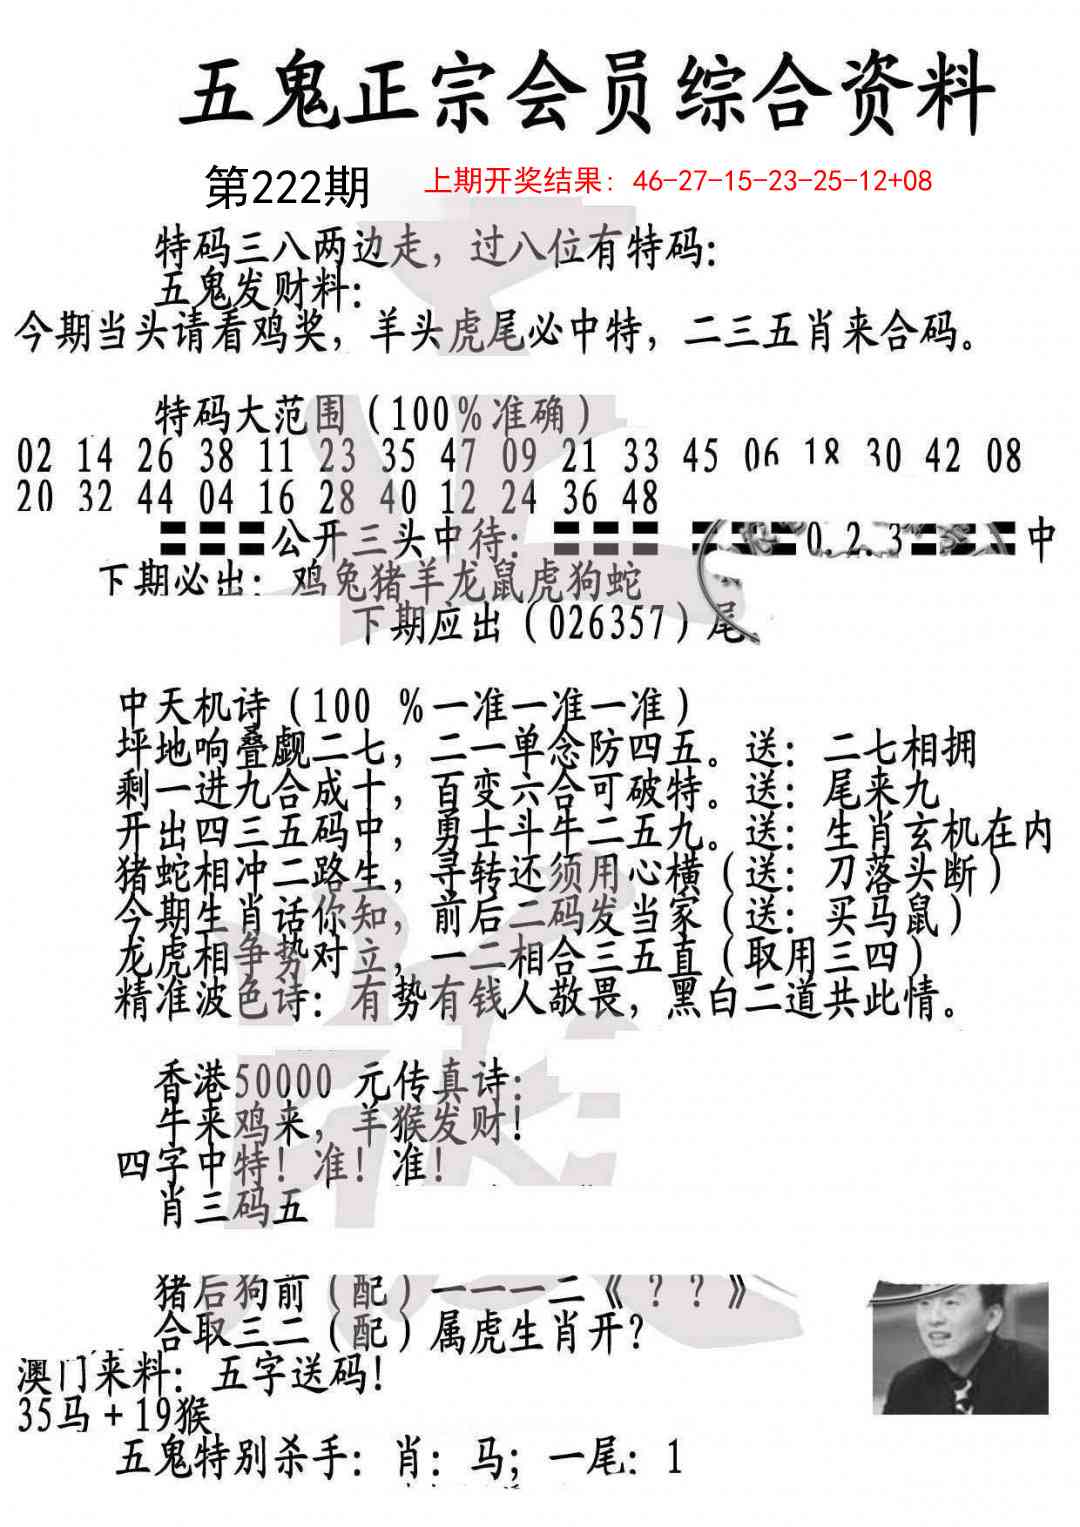 五鬼正宗会员综合资料
第222期 上期开奖结果：46-27-15-23-25-12+08
特码三八两边走，过八位有特码：
五鬼发财料：
今期当头请看鸡奖，羊头虎尾必中特，二三五肖来合码。
特码大范围（100%准确）
02 14 26 38 11 23 35 47 09 21 33 45 06 18 30 42 08
20 32 44 04 16 28 40 12 24 36 48
公开三头中待： 0.2.3 中
下期必出：鸡兔猪羊龙鼠虎狗蛇
下期应出（026357）尾
中天机诗（100 %一准一准一准）
坪地响叠觑二七，二一单念防四五。送：二七相拥
剩一进九合成十，百变六合可破特。送：尾来九
开出四三五码中，勇士斗牛二五九。送：生肖玄机在内
猪蛇相冲二路生，寻转还须用心横（送：刀落头断）
今期生肖话你知，前后二码发当家（送：买马鼠）
龙虎相争势对立，一二相合三五直（取用三四）
精准波色诗：有势有钱人敬畏，黑白二道共此情。
香港50000 元传真诗：
牛来鸡来，羊猴发财！
四字中特！准！准！
肖三码五
猪后狗前（配）一一一二《？？》
合取三二（配）属虎生肖开？
澳门来料：五字送码！
35马＋19猴
五鬼特别杀手：肖：马；一尾：1